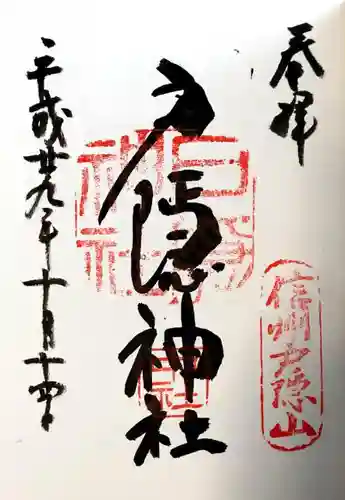 奉拝
信州戸隠山
戸隠神社
平成廿九年十月十四日